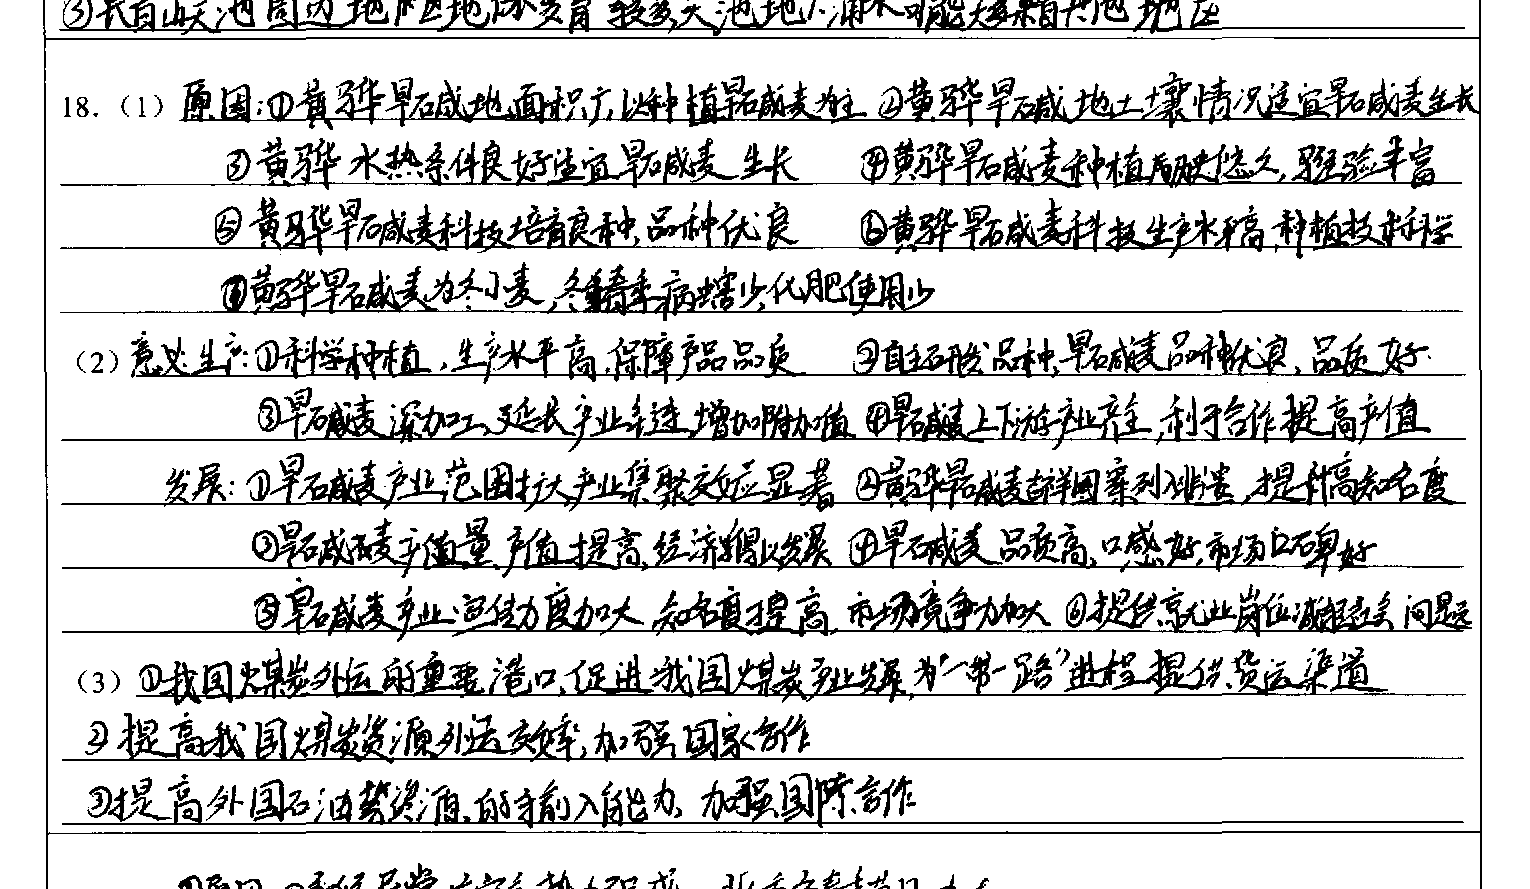 ③长白山天池周边地区地 发育较多,天池地下涌水可能大多来自其他地区
18.（1）原因:①黄骅旱碱地面积广,以种植旱碱麦为主 ②黄骅旱碱地土壤情况适宜旱碱麦生长
③黄骅水热条件良好适宜旱碱麦生长 ④黄骅旱碱麦种植历史悠久,经验丰富
⑤黄骅旱碱麦科技培育良种,品种优良 ⑥黄骅旱碱麦科技生产水平高,种植技术科学
⑦黄骅旱碱麦为冬小麦,冬季病害少,化肥使用少
（2）意义:生产:①科学种植,生产水平高,保障产品品质 ②自主研发品种,旱碱麦品种优良,品质好
③旱碱麦深加工,延长产业链,增加附加值 ④旱碱麦上下游产业 ,利于合作提高产值
发展:①旱碱麦产业范围扩大,产业集聚效应显著 ②黄骅旱碱麦 图案列入 ,提升高知名度
③旱碱麦产量产值提高,经济得以发展 ④旱碱麦品质高,口感好,市场口碑好
⑤旱碱麦产业宣传力度加大,知名度提高,市场竞争力加大 ⑥提供就业岗位减 问题
（3）①我国煤炭外运的重要港口,促进我国煤炭产业发展,为“一带一路”进程提供货运渠道
②提高我国煤炭资源外运效率,加强国家合作
③提高外国石油等资源的输入能力,加强国际合作